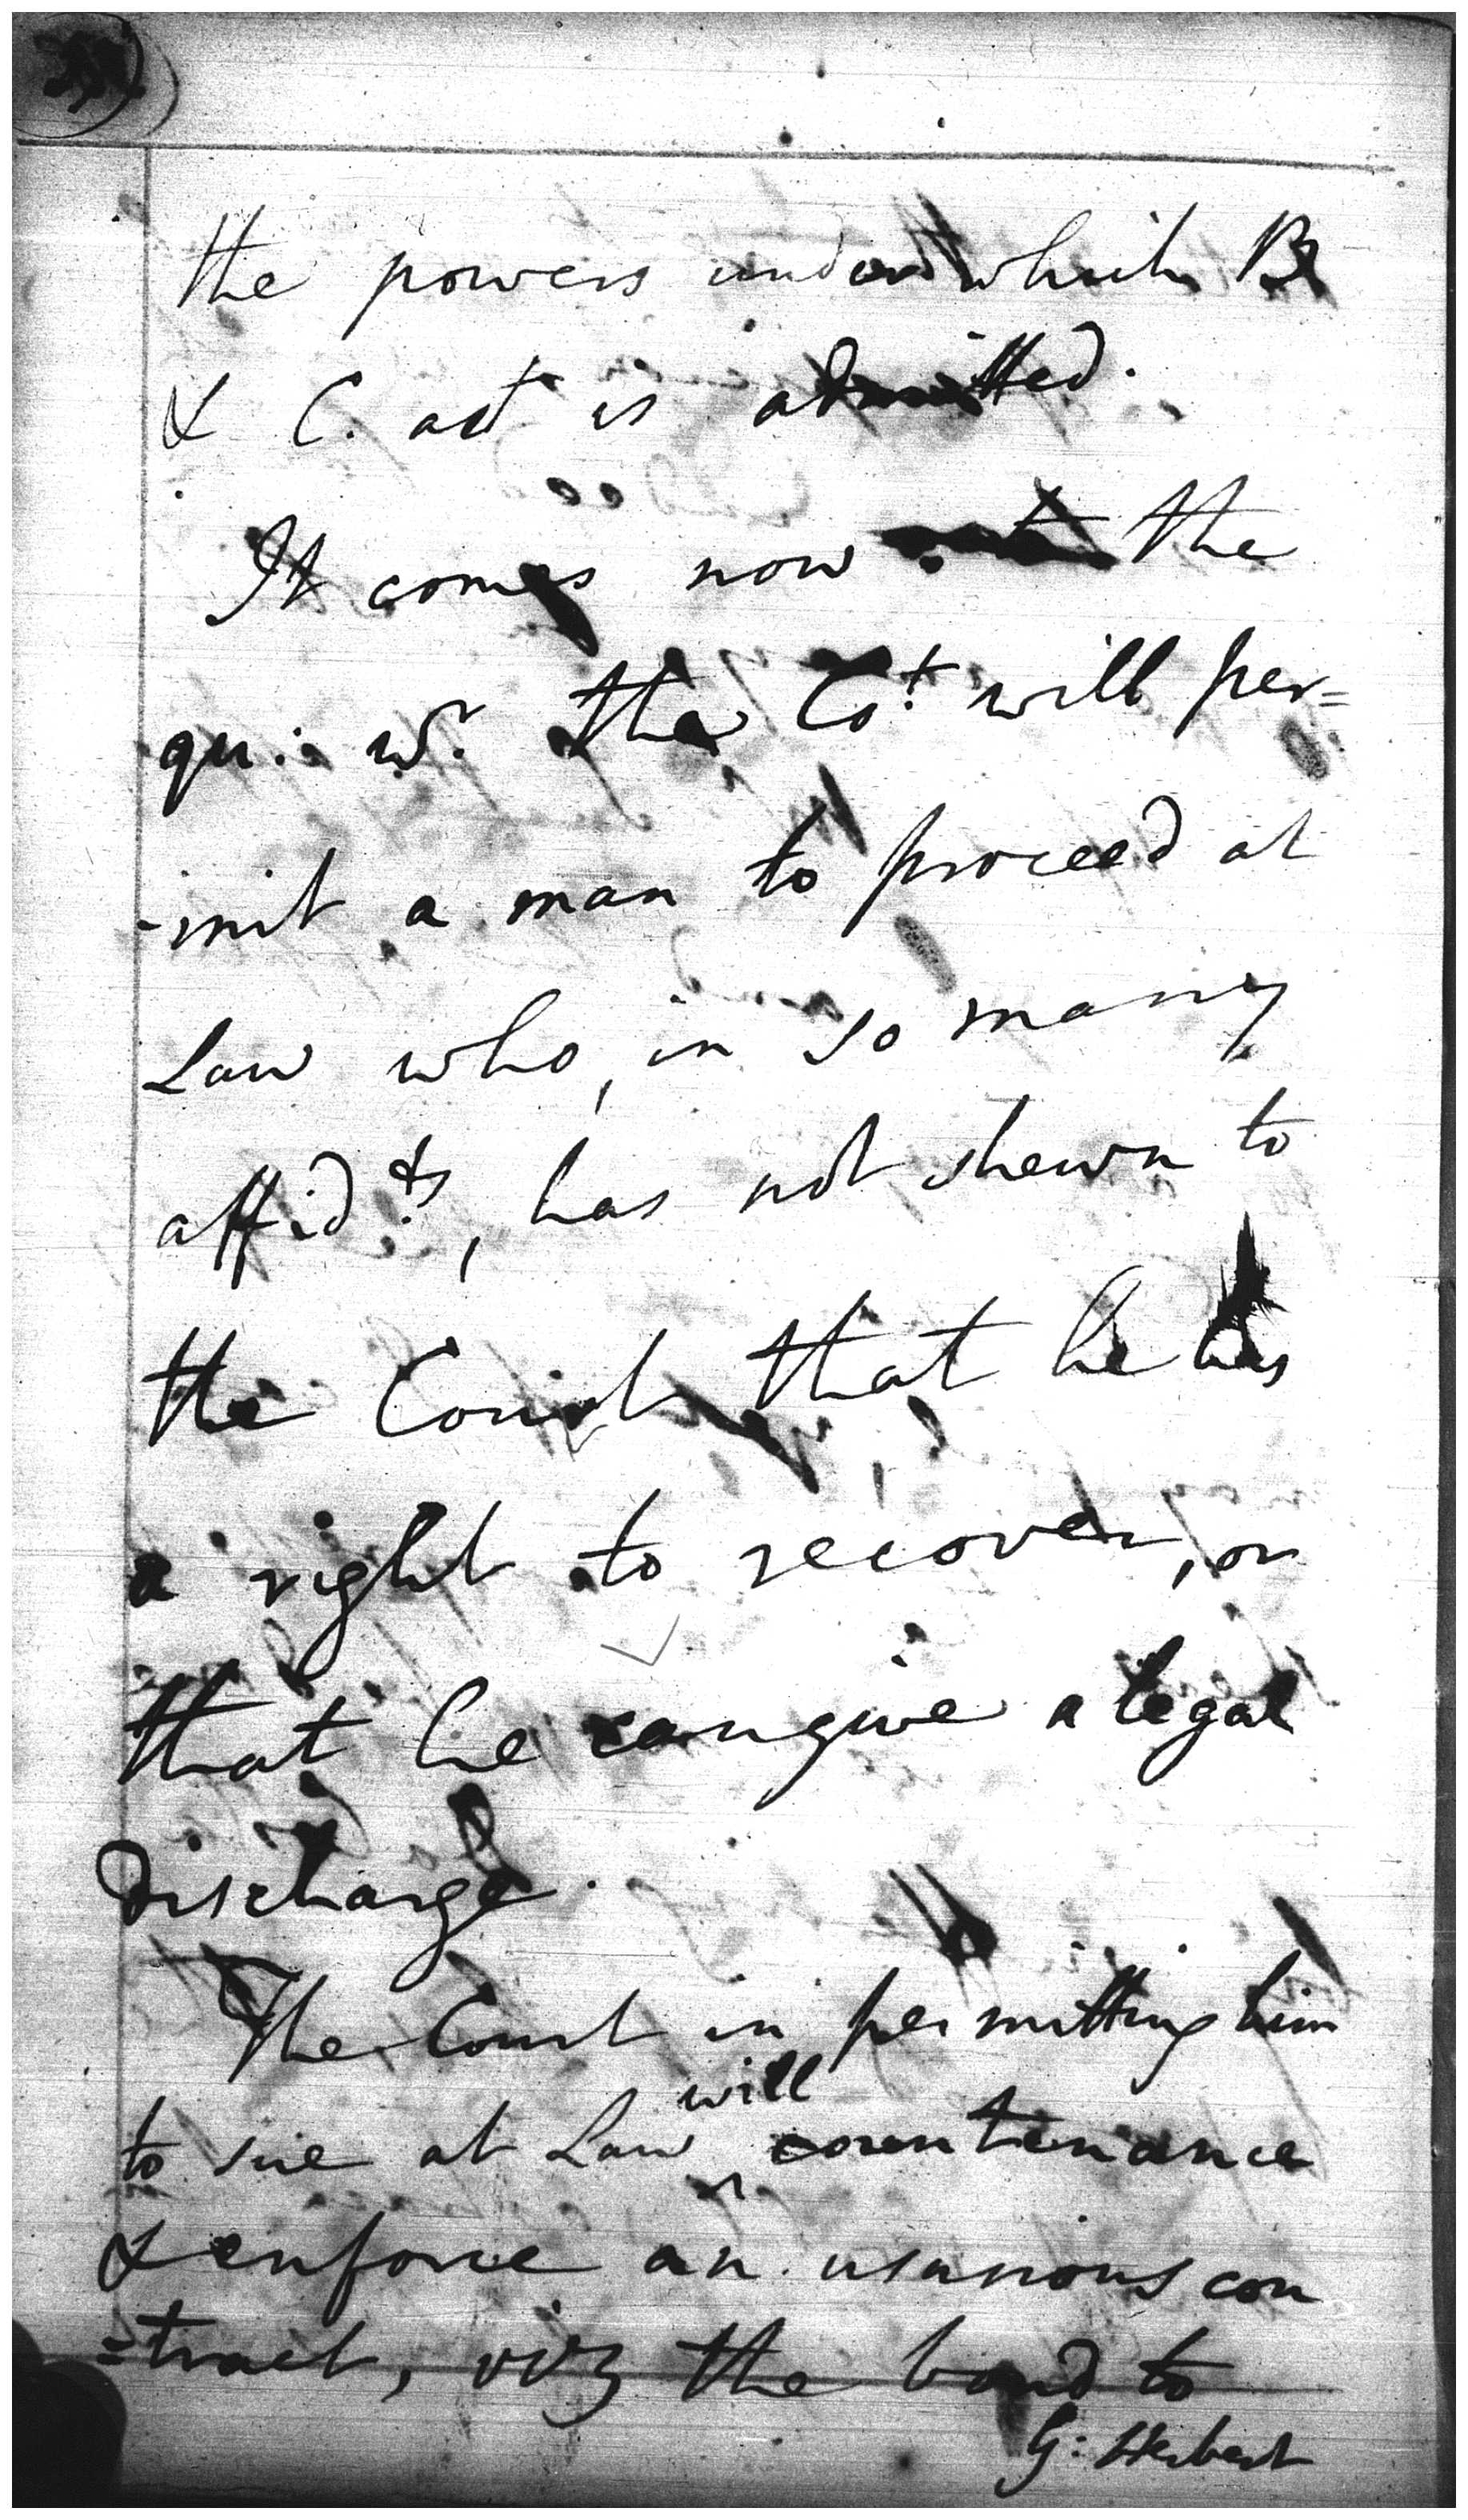 the powers under which B
& C. act is admitted.
It comes now the
qu: wr. the Ct. will per=
-mit a man to proceed at
Law who, in so many
affidts, has not shewn to
the Court that he has
a right to recover, or
that he can give a legal
discharge.
The Court in permitting him
will
to sue at Law ^ countenance
& enforce an usurious con
=tract, viz the bond to
G: Herbert